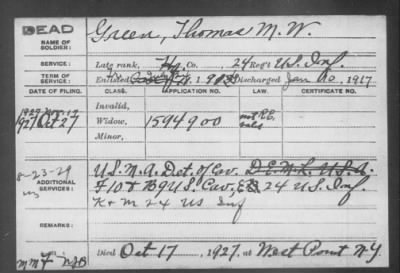 DEAD
Green, Thomas M. W.
NAME OF
SOLDIER:
SERVICE:
Late rank, Co. 24 Reg't U.S. Inf.
TERM OF
SERVICE:
Enlisted Discharged Jan 1917
DATE OF FILING. CLASS. APPLICATION NO. CERTIFICATE NO.
Invalid,
1927 Oct 27 Widow, 1594900
Minor,
8-23-29
ADDITIONAL
SERVICES:
U.S.M.A. Det. of Cav. D.E.M.L. U.S.A.
F 10 & 9 U.S. Cav., 24 U.S. Inf.
K & M 24 US Inf
REMARKS:
Died Oct 17, 1927, at West Point N.Y.